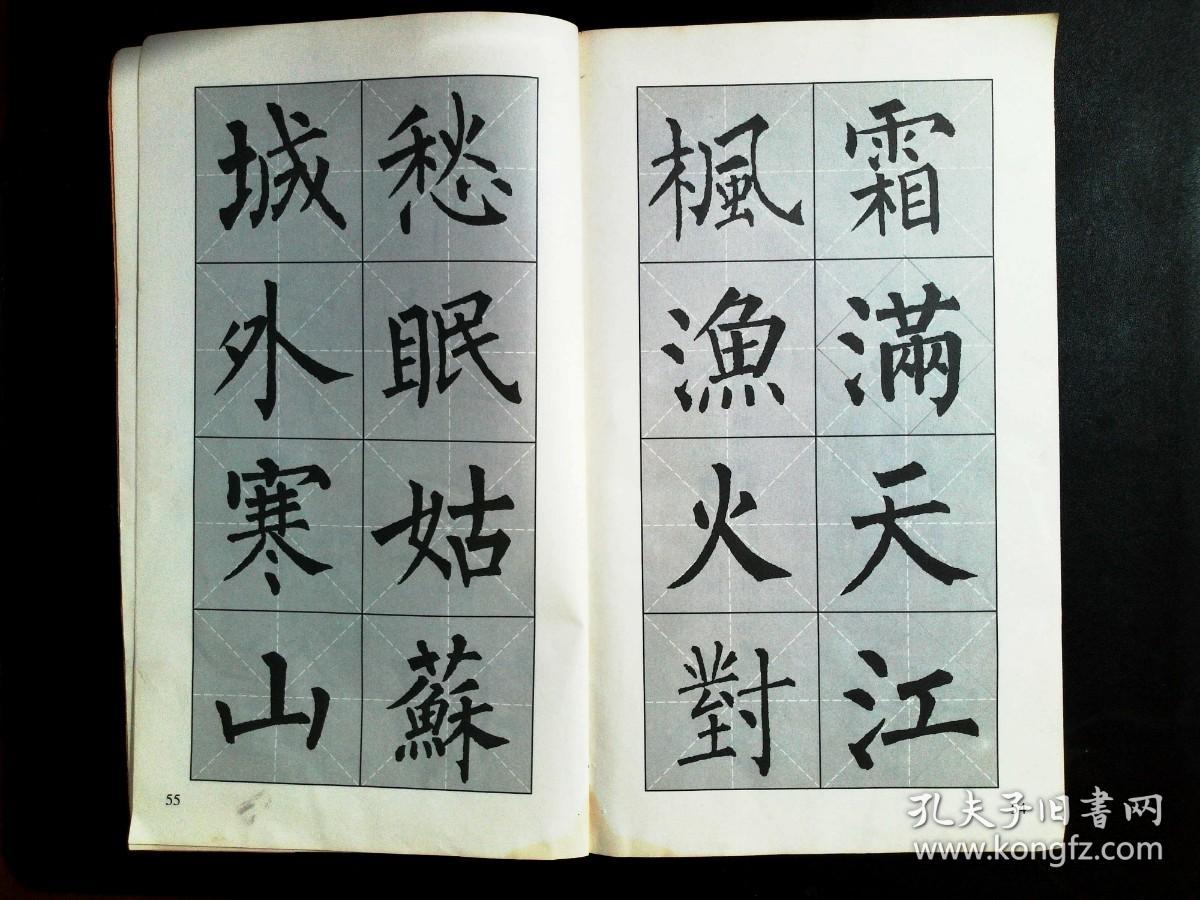 霜滿天江
楓漁火對
愁眠姑蘇
城外寒山
55
孔夫子旧书网
www.kongfz.com